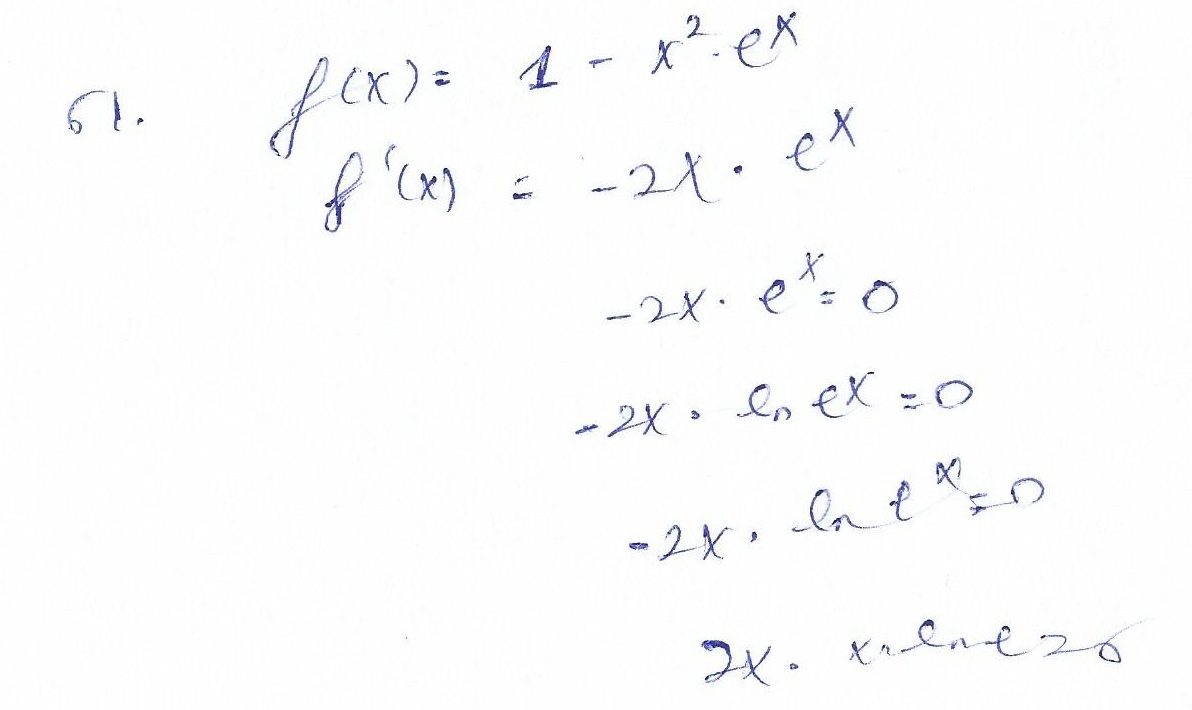 51. f(x) = 1 - x² · eˣ
f'(x) = -2x · eˣ
-2x · eˣ = 0
-2x · ln eˣ = 0
-2x · ln eˣ = 0
2x · x · ln e = 0